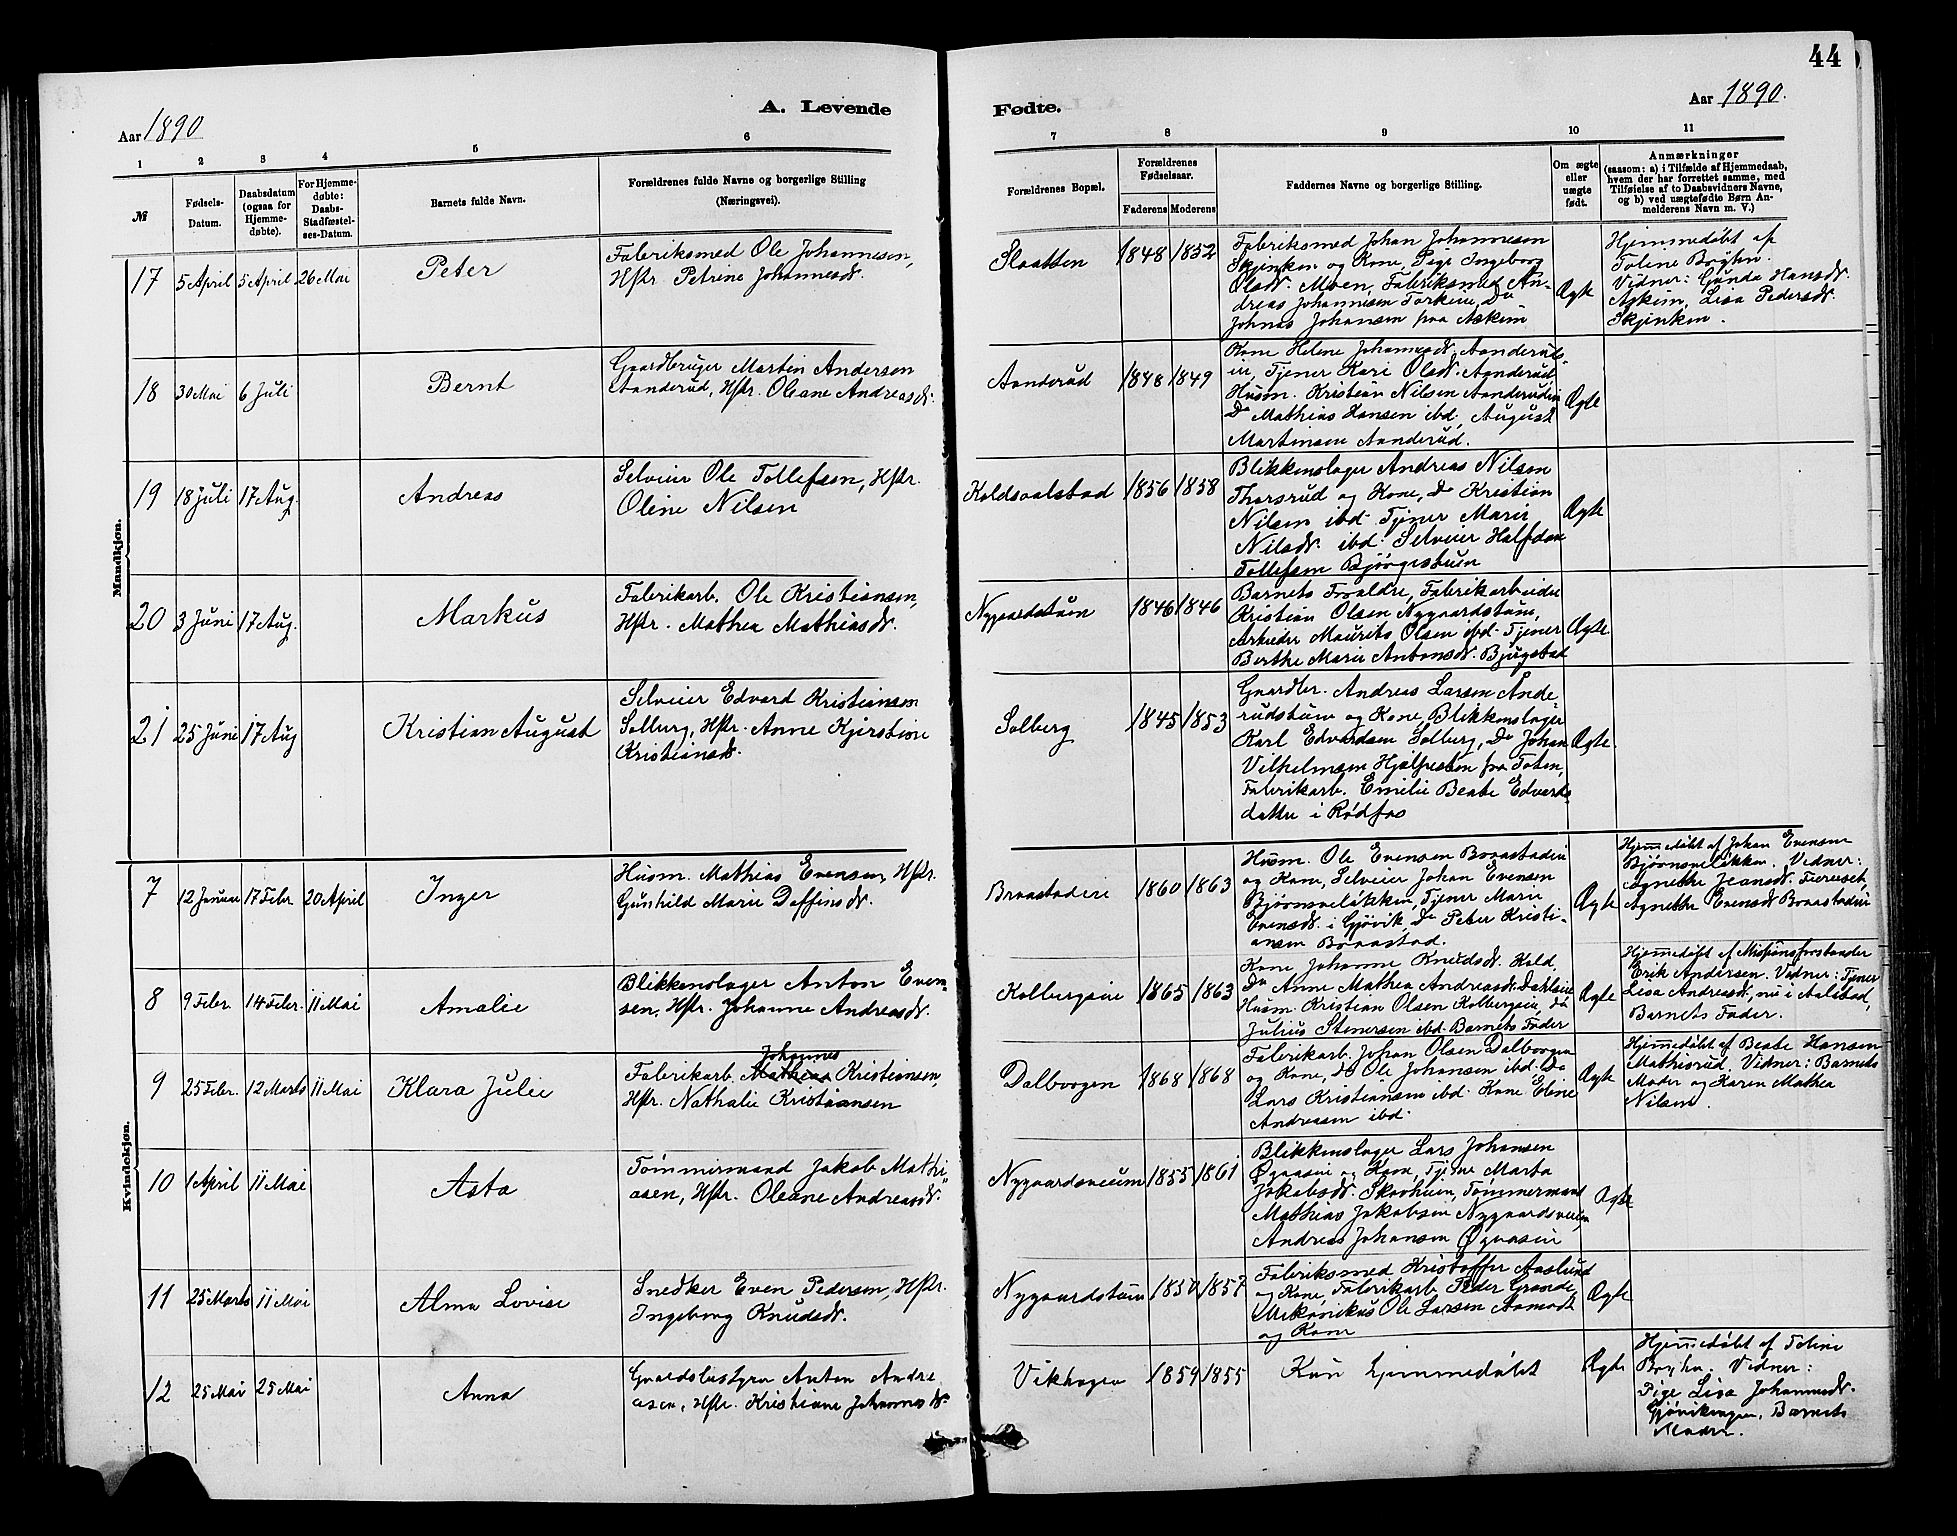 44
Aar 1890
A. Levende
Fødte.
Aar 1890.
1 2 3 4 5 6
7 8 9 10 11
№
Fødsels-
Datum.
Daabsdatum
(ogsaa for
Hjemme-
døbte).
For Hjemme-
døbte:
Daabs-
Stadfæstel-
ses-Datum.
Barnets fulde Navn.
Forældrenes fulde Navne og borgerlige Stilling
(Næringsvei).
Forældrenes Bopæl.
Forældrenes
Fødselsaar.
Faderens Moderens
Faddernes Navne og borgerlige Stilling.
Om ægte
eller
uægte
født.
Anmærkninger
(saasom: a) i Tilfælde af Hjemmedaab,
hvem der har forrettet samme, med
Tilføielse af to Daabsvidners Navne,
og b) ved uægtefødte Børn An-
melderens Navn m. V.)
Mandkjøn.
17 5 April 5 April 26 Mai Peter
Fabriksmed Ole Johannesen,
Hstr. Petrine Johannesdr.
Slaatten 1848 1852
Fabriksmed Johan Johannesen
Skjinken og Kone, Pige Ingeborg
Olsdr. Moen, Fabriksmed An-
dreas Johannesen Do
Johnas Johansen paa Askim
Ægte
Hjemmedøbt af
Toline Bryhn.
Vidner: Gunda Hansdr.
Askim, Lisa Pedersdr.
Skjinken.
18 30 Mai 6 Juli Bernt
Gaardbruger Martin Andersen
Aanderud, Hstr. Oleane Andreasdr.
Aanderud 1848 1849
Kone Helene Johannesdr. Aanderuds-
ein, Tjener Kari Olsdr. Aanderud,
Husm. Kristian Nilsen Aanderudein
Do Mathias Hansen ibd., August
Martinsen Aanderud.
Ægte
19 18 Juli 17 Aug. Andreas
Selveier Ole Tollefsen, Hstr.
Oline Nilsen
Koldsvalstad 1856 1858
Blikkenslager Andreas Nilsen
Thorsrud og Kone, Do Kristian
Nilsen ibd. Tjener Marie
Nilsdr. ibd. Selveier Halfdan
Tollefsen Bjørgestuen
Ægte
20 3 Juni 17 Aug. Markus
Fabrikarb. Ole Kristiansen,
Hstr. Mathea Mathiasdr.
Nygaardstuen 1846 1846
Barnets Forældre, Fabrikarbeider
Kristian Olsen Nygaardstuen,
Arbeider Maurits Olsen ibd. Tjener
Berthe Marie Antonsdr. Bjugstad
Ægte
21 25 Juni 17 Aug Kristian August
Selveier Edvard Kristiansen
Solberg, Hstr. Anne Kjerstine
Kristiansdr.
Solberg 1845 1853
Gaardbr. Andreas Larsen Ande
rudstuen og Kone, Blikkenslager
Karl Edvardsen Solberg, Do Johan
Vilhelmsen fra Toten,
Fabrikarb. Emilie Beate Edvards
datter i Rødfos
Ægte
Kvindekjøn.
7 12 Januar 17 Febr. 20 April Inger
Husm. Mathias Evensen, Hstr.
Gunhild Marie Daffinsdr.
Braastadeie 1860 1863
Husm. Ole Evensen Braastadeie
og Kone, Selveier Johan Evensen
Bjørnsveløkken, Tjener Marie
Evensdr. i Gjøvik, Do Peter Kristi-
ansen Braastad.
Ægte
Hjemmedøbt af Johan Evensen
Bjørnsveløkken. Vidner:
Agnethe Jensdr.
Agnethe Evensdr. Braastadeie
8 9 Febr. 14 Febr. 11 Mai Amalie
Blikkenslager Anton Even-
sen, Hstr. Johanne Andreasdr.
Kolbergseie 1865 1863
Kone Johanne Knudsdr. Kold
Do Anne Mathea Andreasdr.
Husm. Kristian Olsen Kolbergseie, do
Julius Stenersen ibd. Barnets Fader
Ægte
Hjemmedøbt af Missionsforstander
Erik Andersen. Vidner: Tjener
Lisa Andreasdr., nu i Aalstad,
Barnets Fader.
9 25 Febr. 12 Marts 11 Mai Klara Julie
Johannes
Fabrikarb. Mathias Kristiansen,
Hstr. Nathalie Kristiansen
Dalborgen 1868 1868
Fabrikarb. Johan Olsen Dalborgen
og Kone, Do Ole Johansen ibd. Do
Lars Kristiansen ibd. Kone Eline
Andreasen ibd.
Ægte
Hjemmedøbt af Beate Hansen
Mathisrud. Vidner: Barnets
Moder og Karen Mathea
Nilsen.
10 1 April 11 Mai Asta
Tømmermand Jakob Mathi
asen, Hstr. Oleane Andreasdr.
Nygaardsveien 1855 1861
Blikkenslager Lars Johansen
og Kone, Tjener Marta
Jakobsdr. Skovheim, Tømmermand
Mathias Jakobsen Nygaardsveien,
Andreas Johansen
Ægte
11 25 Marts 11 Mai Alma Lovise
Snedker Even Pedersen, Hstr.
Ingeborg Knudsdr.
Nygaardstuen 1850 1857
Fabriksmed Kristoffer Aaslund
og Kone, Fabrikarb. Peder Grande,
Mekanikus Ole Larsen Aamodt
og Kone
Ægte
12 25 Mai 25 Mai Anna
Gaardsbestyrer Anton Andre
asen, Hstr. Kristiane Johannesdr.
Vikhagen 1859 1855
Kun hjemmedøbt
Ægte
Hjemmedøbt af Toline
Bryhn. Vidner:
Pige Lisa Johannesdr.
Gjøvikhagen, Barnets
Moder.